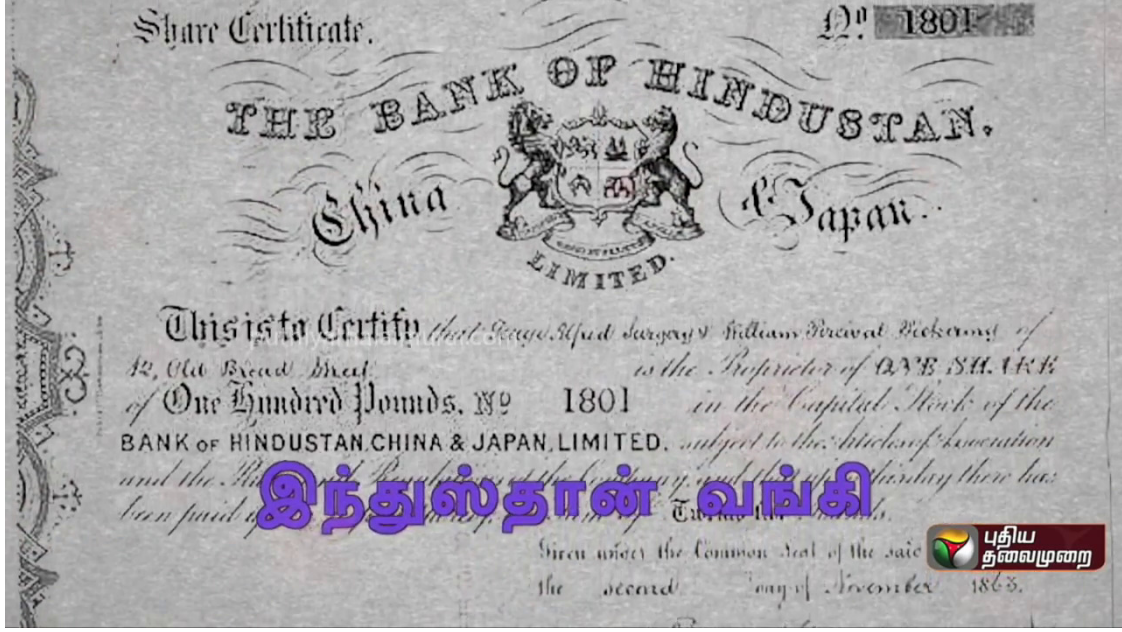 Share Certificate.
Nº 1801
THE BANK OF HINDUSTAN.
China & Japan..
LIMITED.
This is to Certify that Alfred William Percival Pickering of
12, Old Broad Street is the Proprietor of ONE SHARE
of One Hundred Pounds. Nº 1801 in the Capital Stock of the
BANK OF HINDUSTAN, CHINA & JAPAN, LIMITED. subject to the Articles of Association
and the there has
இந்துஸ்தான் வங்கி
been paid
புதிய
தலைமுறை
Given under the Common Seal of the said
the second day of November 1863.